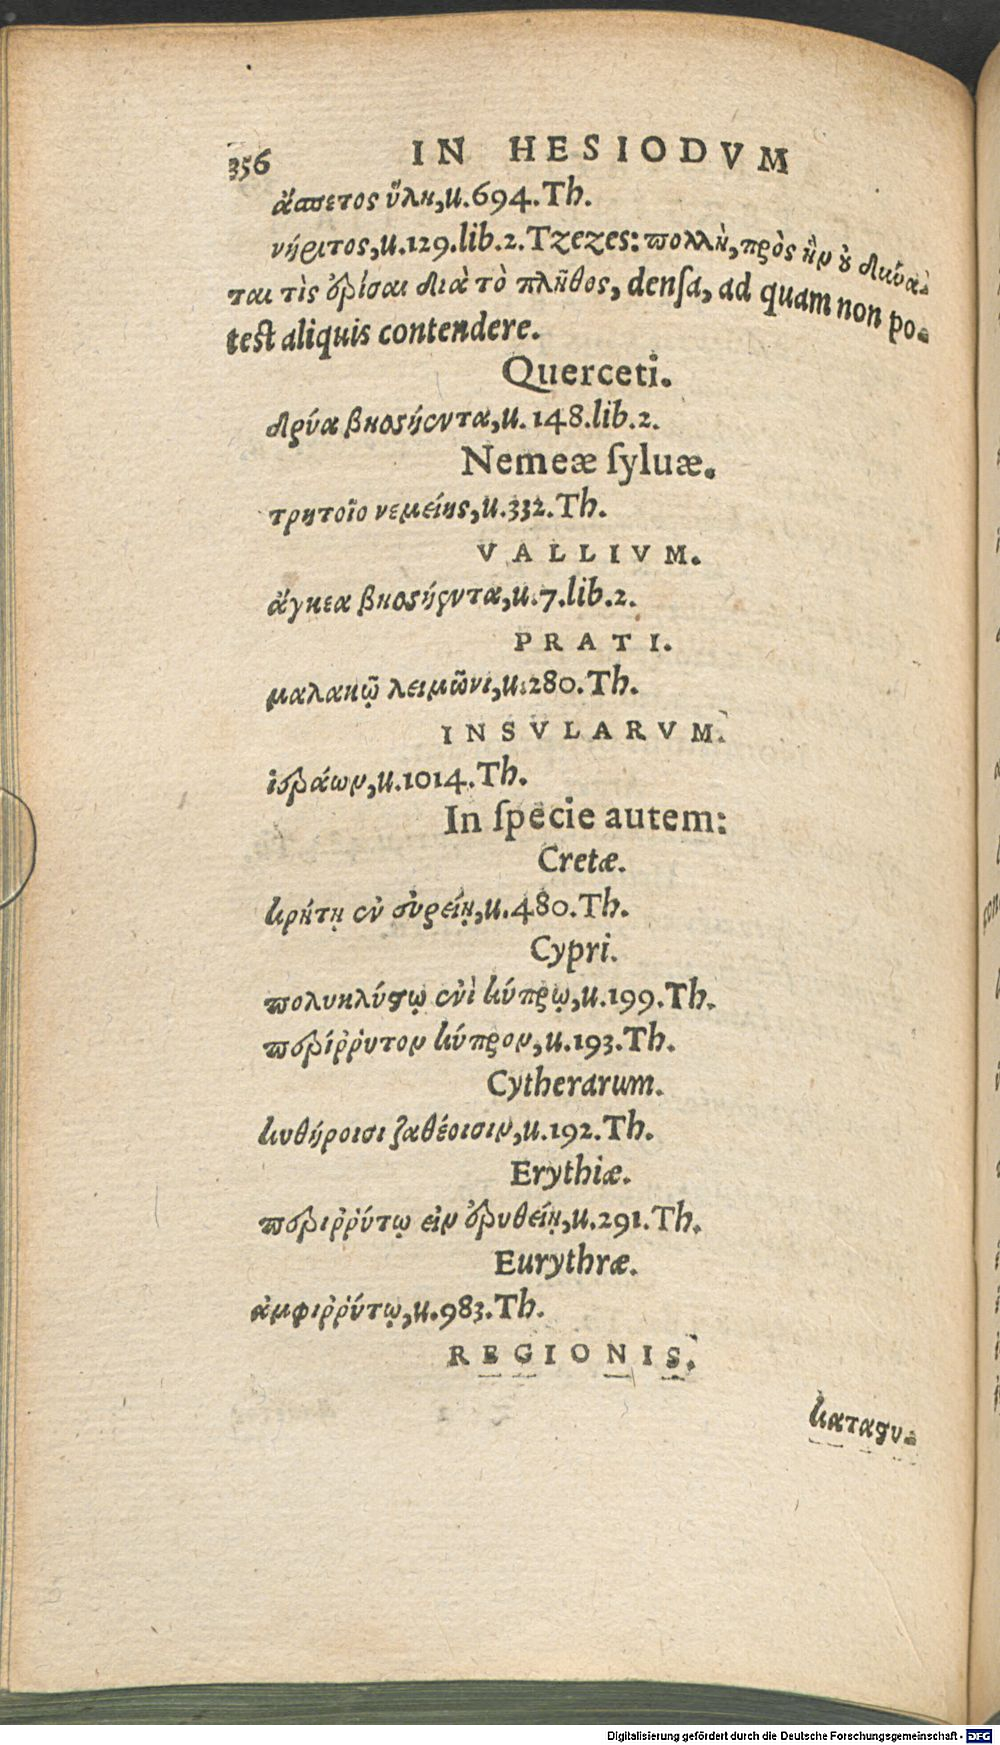 356 IN HESIODVM
ἄσπετος ὕλη, u. 694. Th.
νήριτος, u. 129. lib. 2. Tzezes: πολλὴ, πρὸς ἣν οὐ δύναται
ται τὶς ἐρίσαι διὰ τὸ πλῆθος, densa, ad quam non po-
test aliquis contendere.
Querceti.
δρύα βησσήεντα, u. 148. lib. 2.
Nemeæ syluæ.
τρητοῖο νεμείης, u. 332. Th.
VALLIVM.
ἄγκεα βησσήεντα, u. 7. lib. 2.
PRATI.
μαλακῷ λειμῶνι, u. 280. Th.
INSVLARVM.
ἱεράων, u. 1014. Th.
In specie autem:
Cretæ.
κρήτῃ ἐν εὐρείῃ, u. 480. Th.
Cypri.
πολυκλύστῳ ἐνὶ κύπρῳ, u. 199. Th.
περίῤῥυτον κύπρον, u. 193. Th.
Cytherarum.
κυθήροισι ζαθέοισιν, u. 192. Th.
Erythiæ.
περιῤῥύτῳ εἰν ἐρυθείῃ, u. 291. Th.
Eurythræ.
ἀμφιῤῥύτῳ, u. 983. Th.
REGIONIS.
καταστυ-
Digitalisierung gefördert durch die Deutsche Forschungsgemeinschaft - DFG